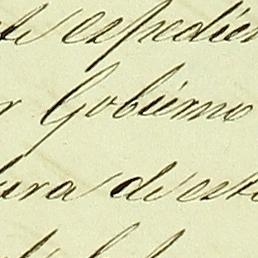 te espedien
r Gobierno
ura de est